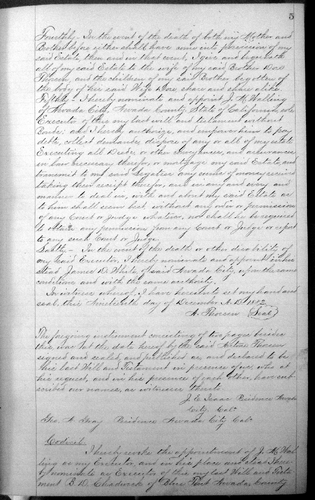 5
Fourthly. In the event of the death of both my Mother and
Brother before either shall have come into possession of my
said Estate, then and in that event, I give and bequeath
all of my said Estate to the wife of my said Brother
and the children of my said Brother begotten of
the body of his said Wife share and share alike
Fifthly - I hereby nominate and appoint J. M. Walling
of Nevada City Nevada County State of California sole
Executor of this my last will and testament without
Bonds. and I hereby authorize, and empower him to pay
debts, collect dues, dispose of any or all of my estate
Executing all Deeds, or other Conveyances, and acknowledgments
in law necessary therefor, or mortgage my said Estate and
transmit to my said legatees any sums of money received
taking their receipt therefor, and in any and every
manner to deal in, with and about my said Estate as
to him shall seem best, without any order or permission
of any Court or Judge whatever, nor shall he be required
to obtain any permission from any Court or Judge or report
to any such Court or Judge.
Sixthly - In event of the death or other disability of
my said Executor, I hereby nominate and appoint in his
stead James D. White of said Nevada City, upon the same
conditions and with the same authority.
In witness whereof I have hereto set my hand and
seal this Nineteenth day of December A. D. 1882
A. Thorsen (Seal)
The foregoing instrument consisting of two pages besides
this, was at the date hereof by the said
signed and sealed and published as, and declared to be
his last Will and Testament in presence of us, who at
his request, and in his presence, and in presence of each other, have sub
scribed our names, as witnesses thereto
Residence Nevada
City Cal.
Geo. A. Gray Residence Nevada City Cal.
Codicil
I hereby revoke the appointment of J. M. Wal
ling as my Executor, and in his place and stead I here
by nominate as Executor of this my last Will and Testa
ment E. D. Chadwick of Blue Tent Nevada County